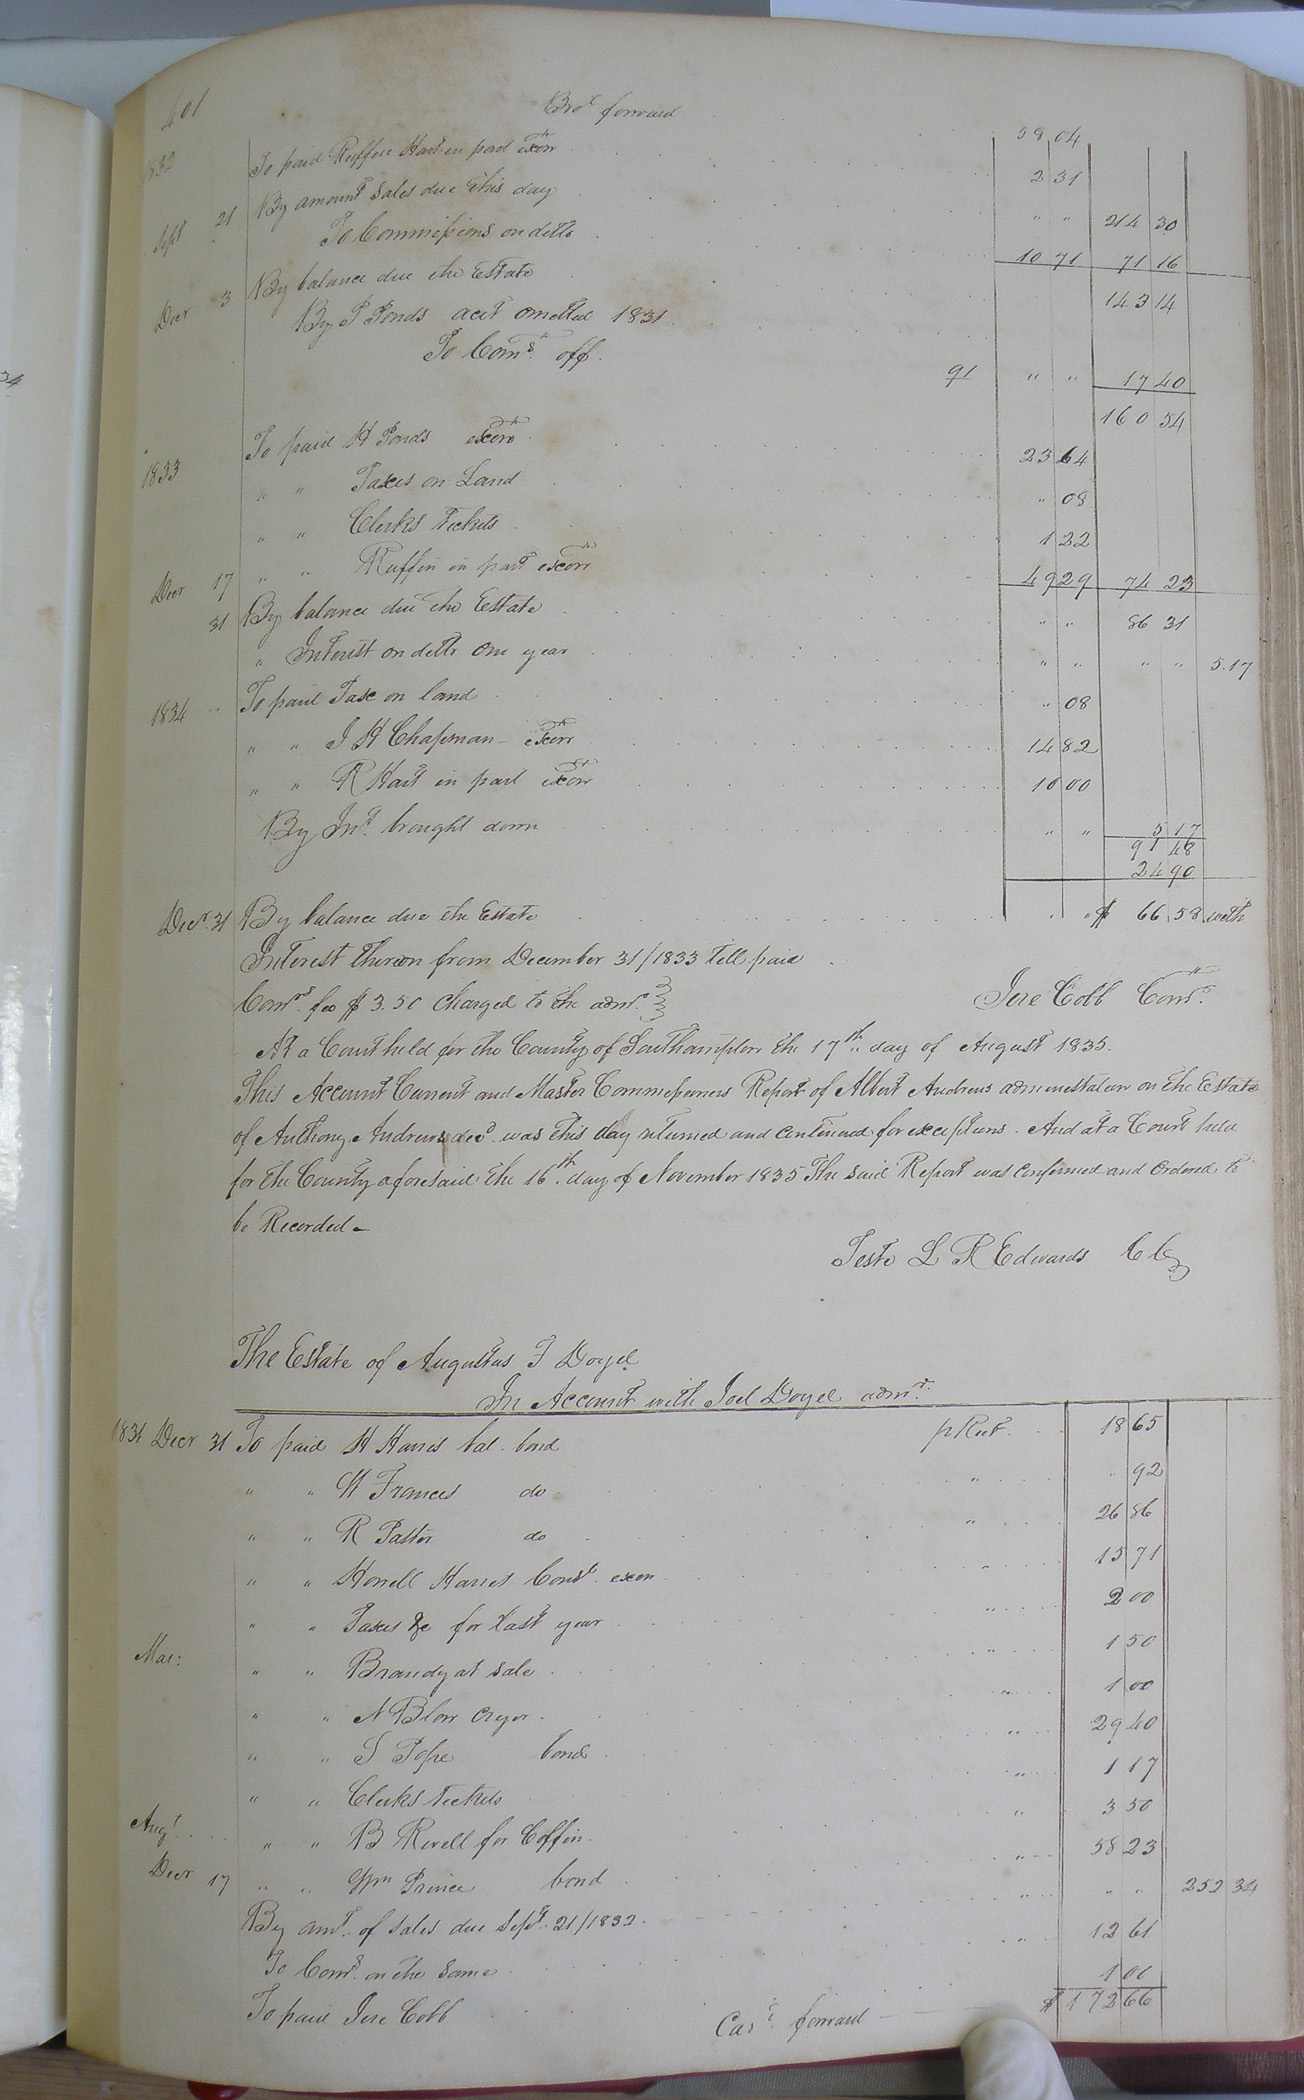 401
Bro.t forward
1832 To paid Ruffin Hart in part Exon 58 04
Sept 21 By amount Sales due this day 2 31
To Commissions on ditto " " 214 30
10 71 71 16
Decr 3 By balance due the Estate 143 14
By P Ponds acct omitted 1831
To Coms. off 91 " " 17 40
160 54
1833 To paid H Ponds exon 23 64
" " Taxes on Land " 08
" " Clerks Tickets 1 22
Decr 17 " " Ruffin in part exon 49 29 74 23
31 By balance due the Estate " " 86 31
" Interest on ditto One year " " " " 5.17
1834 To paid Tax on land " 08
" " J H Chapman - Exon 14 82
" " R Hart in part exon 10 00
By Int. brought down " " 5 17
91 48
24 90
Decr. 31 By balance due the Estate " " $ 66 58 with
Interest thereon from December 31/1833 till paid
Comrs. fee $ 3.50 charged to the admr. Jere Cobb Comr.
At a Court held for the County of Southampton the 17th. day of August 1835.
This Account Current and Master Commissioners Report of Albert Andrews administration on the Estate
of Anthony Andrews decd. was this day returned and continued for exceptions. And at a Court held
for the County aforesaid the 16th. day of November 1835 The said Report was confirmed and Ordered to
be Recorded -
Teste L R Edwards CC
The Estate of Augustus F Doyel
In Account with Joel Doyel admr.
1831 Decr 31 To paid H Harris bal. bond p Rect. 18 65
" " W Frances do " " 92
" " R Pastor do " 26 86
" " Howell Harris Const. exon " 15 71
" " Taxes &c for last year " 2 00
Mar: " " Brandy at sale " 1 50
" " N Blow Cryer " 1 00
" " S Pope bond " 29 40
" " Clerks Tickets " 1 17
Augt. " " B Revell for Coffin " 3 50
Decr 17 " " Wm Prince bond " 58 23
By amt. of sales due Sept. 21/1832. " " " 252 34
To Coms. on the Same " 12 61
To paid Jere Cobb 1 00
Card. forward $ 172 66